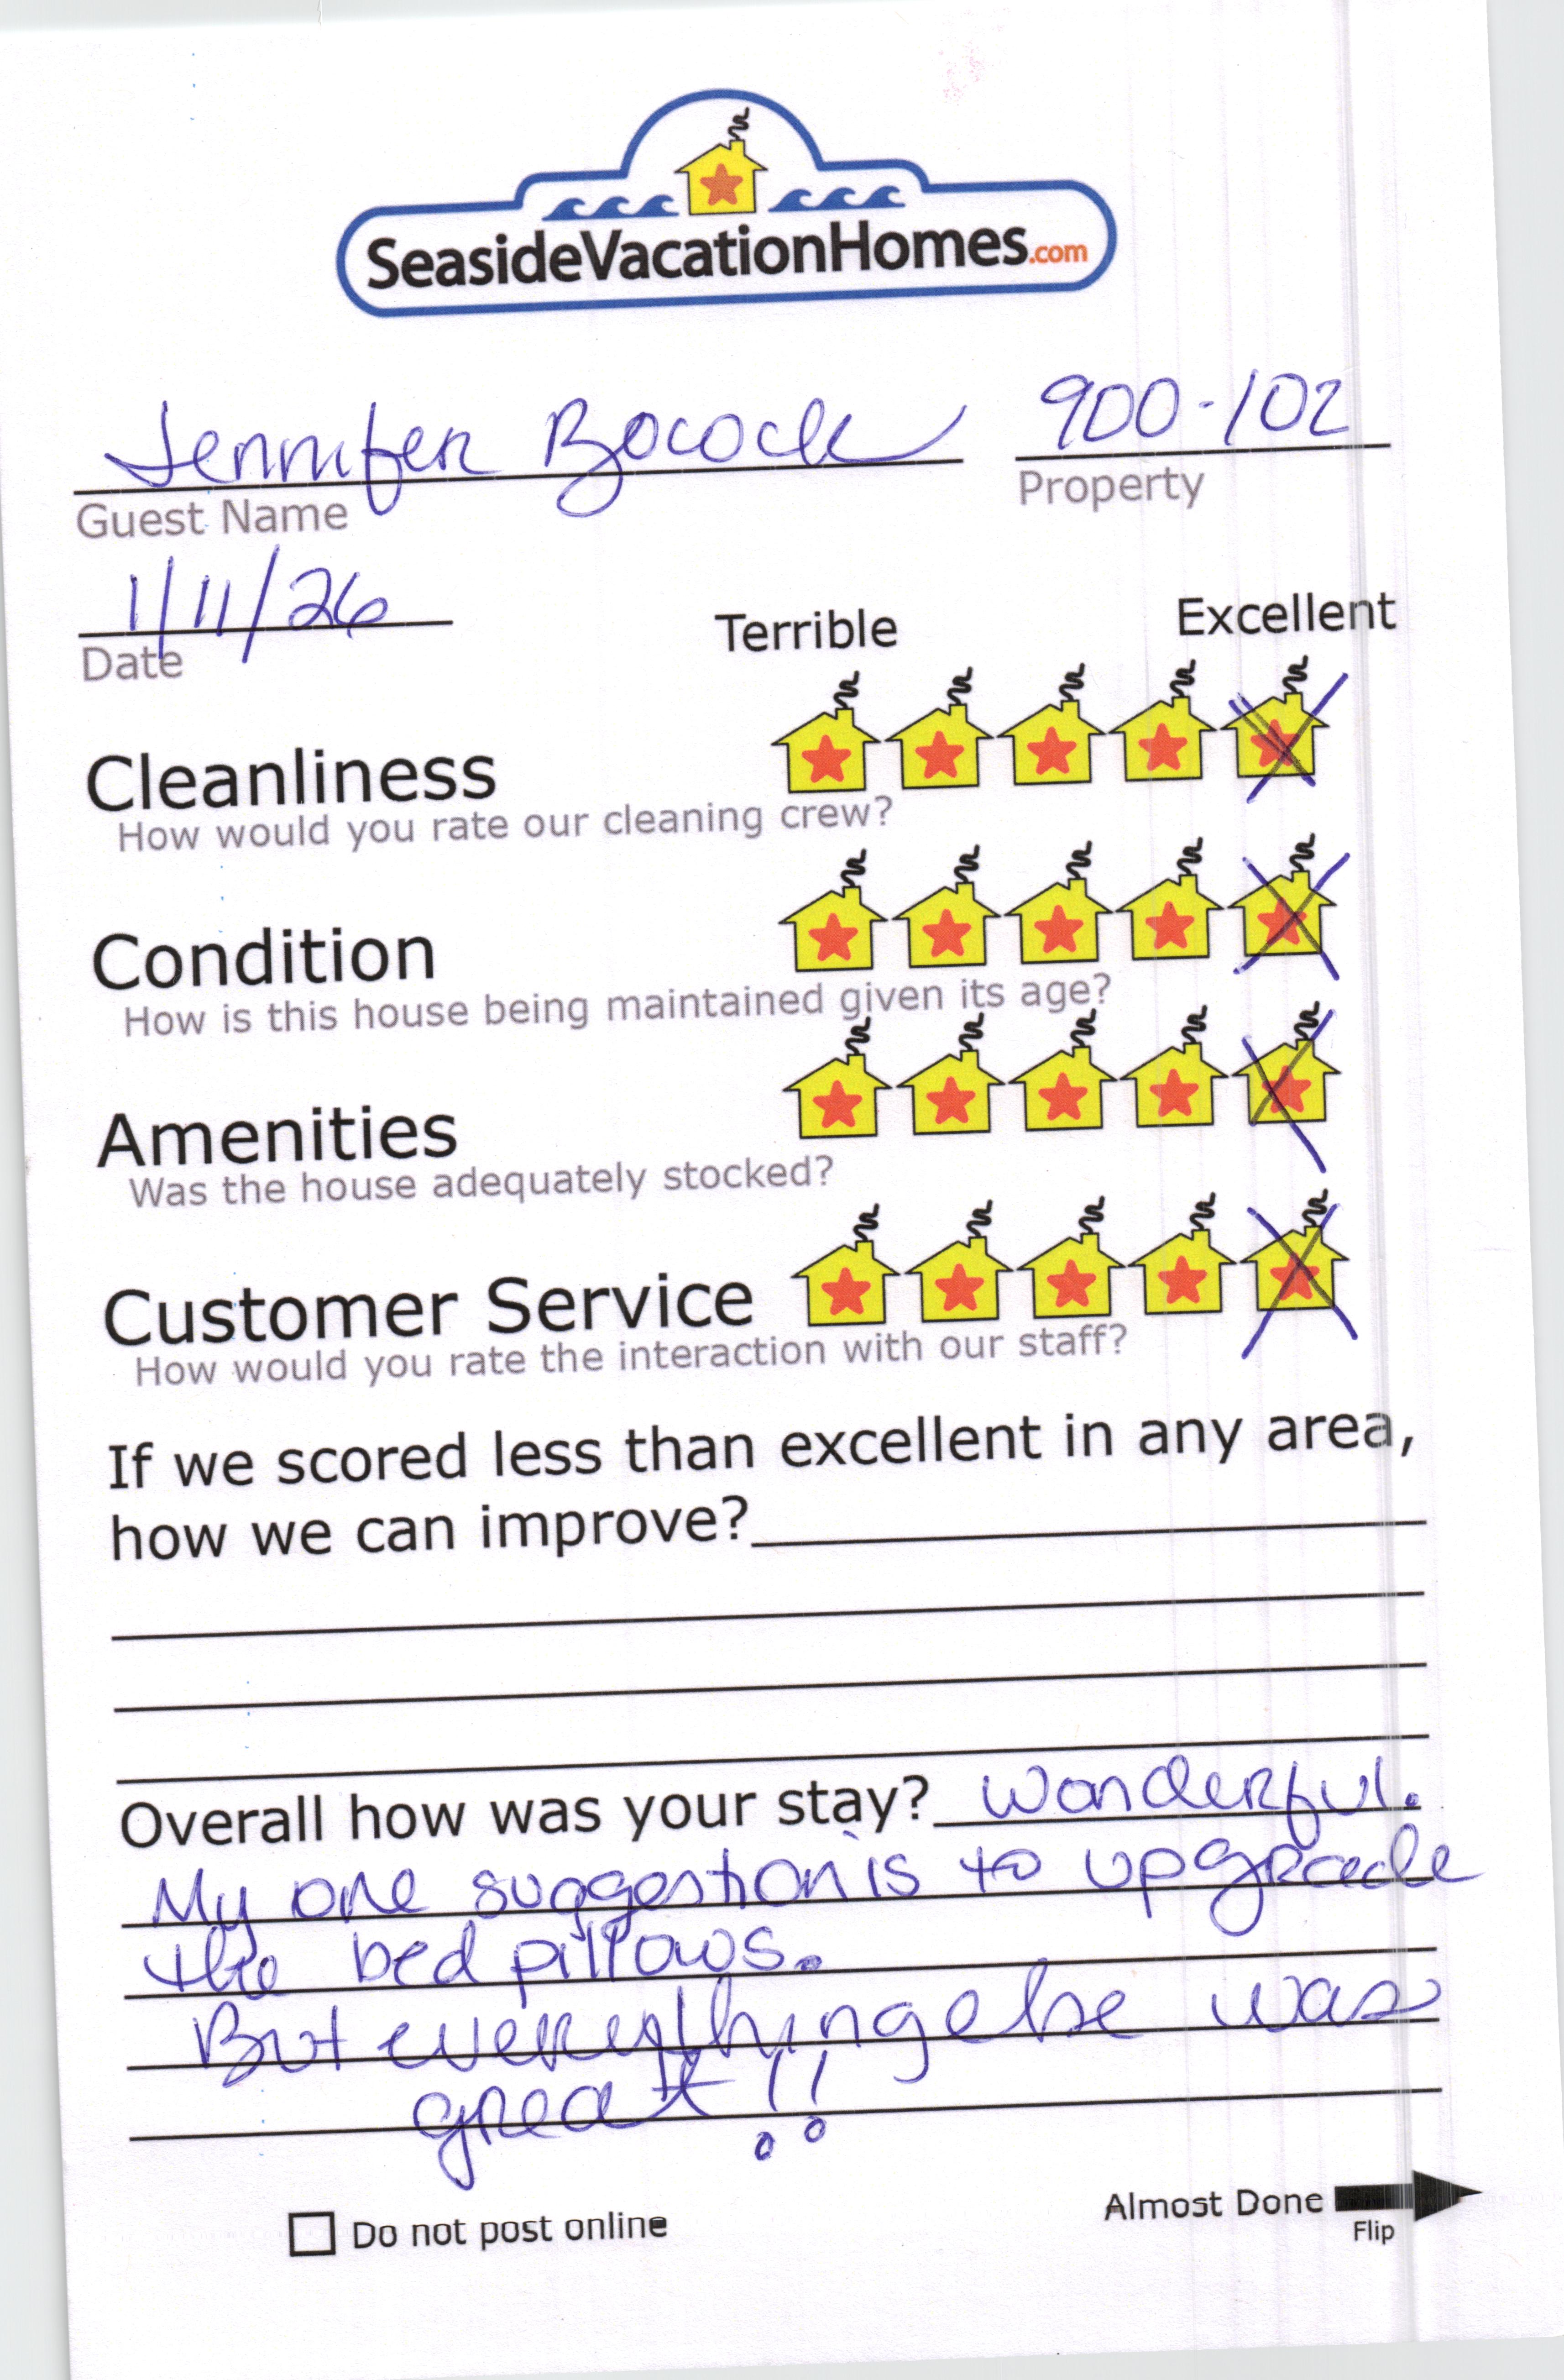 SeasideVacationHomes.com
Jennifer Bocock 900-102
Guest Name Property
1/11/26
Date
Terrible Excellent
Cleanliness
How would you rate our cleaning crew?
Condition
How is this house being maintained given its age?
Amenities
Was the house adequately stocked?
Customer Service
How would you rate the interaction with our staff?
If we scored less than excellent in any area,
how we can improve?
Overall how was your stay? Wonderful.
My one suggestion is to upgrade
the bed pillows.
But everything else was
great!!
Do not post online
Almost Done
Flip